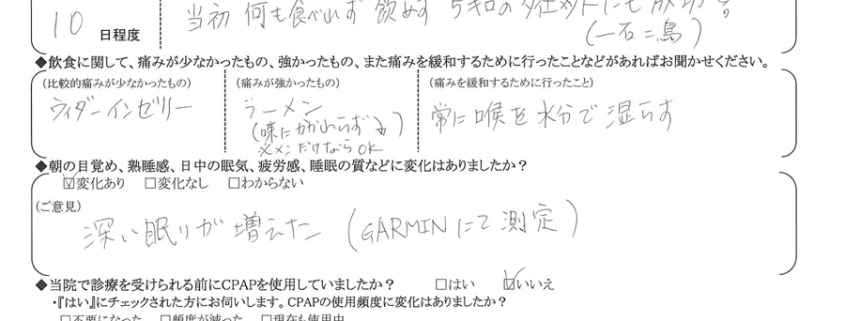 10 日程度
当初 何も食べれず 飲めず 5キロのダイエットにも成功です。
(一石二鳥)
◆飲食に関して、痛みが少なかったもの、強かったもの、また痛みを緩和するために行ったことなどがあればお聞かせください。
(比較的痛みが少なかったもの) (痛みが強かったもの) (痛みを緩和するために行ったこと)
ウィダーインゼリー ラーメン 常に喉を水分で湿らす
(味にかかわらず)
メンだけなら OK
◆朝の目覚め、熟睡感、日中の眠気、疲労感、睡眠の質などに変化はありましたか?
☑変化あり □変化なし □わからない
(ご意見)
深い眠りが増えた (GARMINにて測定)
◆当院で診療を受けられる前にCPAPを使用していましたか? □はい ☑いいえ
・『はい』にチェックされた方にお伺いします。CPAPの使用頻度に変化はありましたか?
□不要になった □頻度が減った □現在も使用中